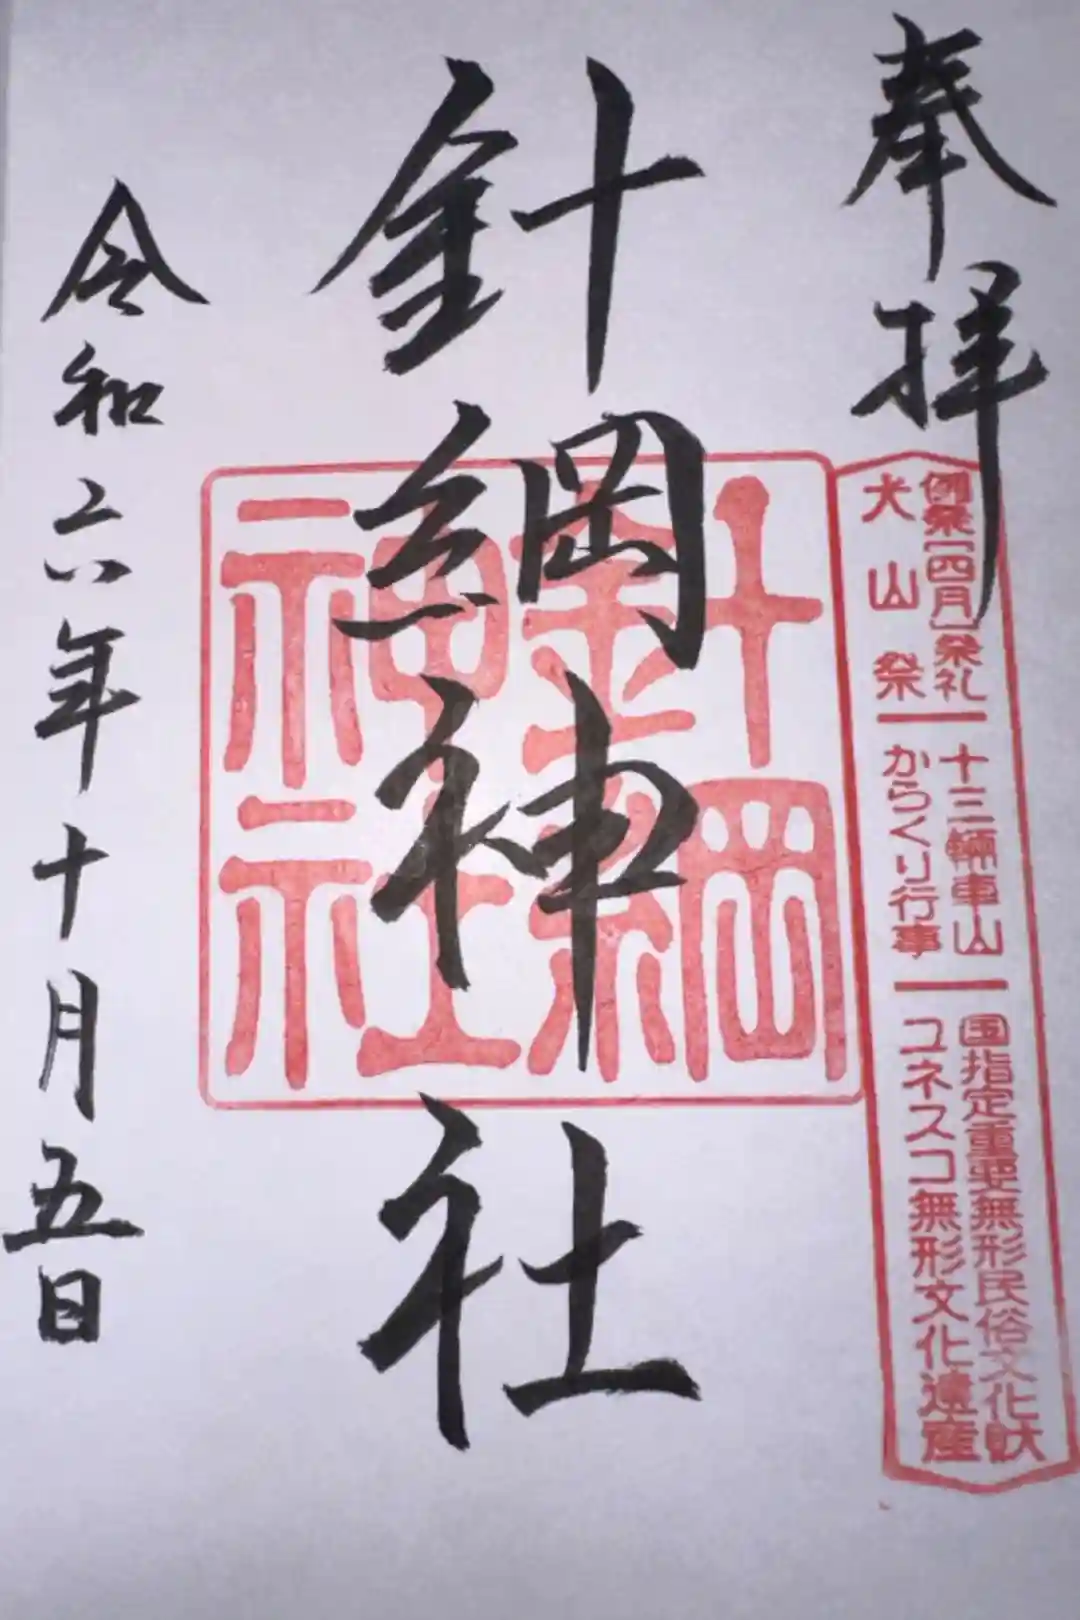 奉拝
例祭[四月]祭礼
犬山祭
十三輛車山
からくり行事
国指定重要無形民俗文化財
ユネスコ無形文化遺産
針綱神社
針綱
神社
令和六年十月五日